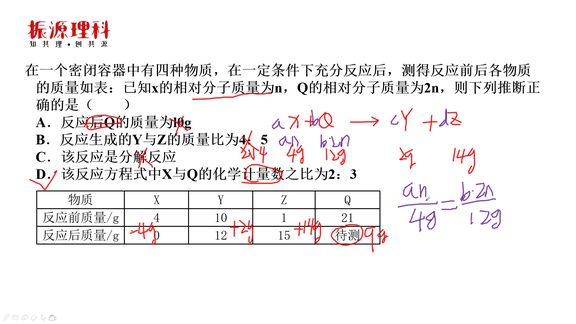 振源理科
知其理·创其源
在一个密闭容器中有四种物质，在一定条件下充分反应后，测得反应前后各物质
的质量如表：已知x的相对分子质量为n，Q的相对分子质量为2n，则下列推断正
确的是（ ）
A．反应后Q的质量为10g
B．反应生成的Y与Z的质量比为4：5
C．该反应是分解反应
D．该反应方程式中X与Q的化学计量数之比为2：3
aX+bQ → cY + dZ
an b·2n
4g 12g 2g 14g
an/4g = b·2n/12g
物质 X Y Z Q
反应前质量/g 4 10 1 21
反应后质量/g 0 12 15 待测
-4g +2g +14g 9g